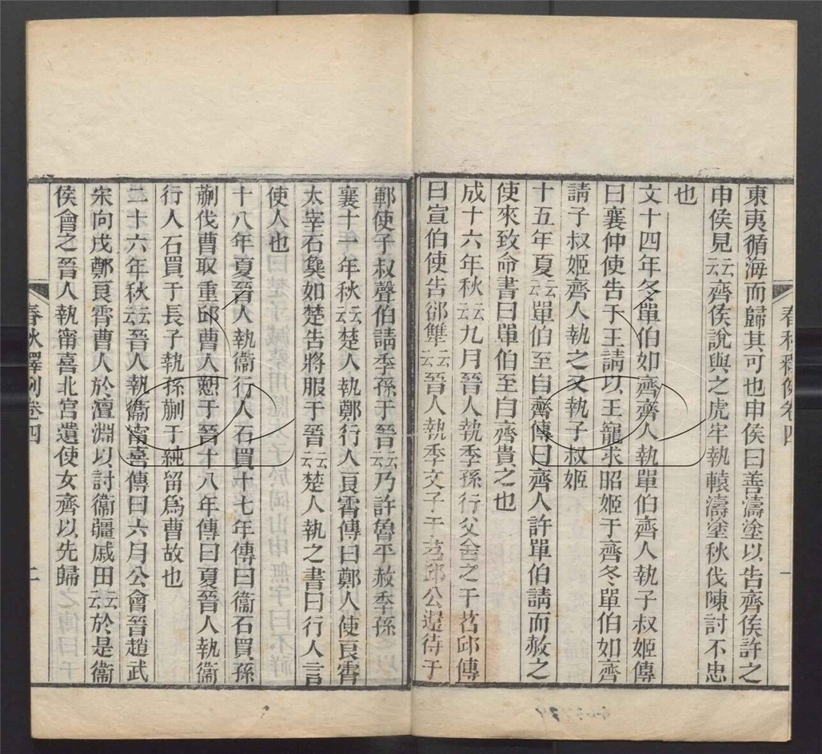 東夷循海而歸其可也申侯曰善濤塗以告齊侯許之
申侯見云云齊侯說與之虎牢執轅濤塗秋伐陳討不忠
也
文十四年冬單伯如齊齊人執單伯齊人執子叔姬傳
曰襄仲使告于王請以王寵求昭姬于齊冬單伯如齊
請子叔姬齊人執之又執子叔姬
十五年夏云云單伯至自齊傳曰齊人許單伯請而赦之
使來致命書曰單伯至自齊貴之也
成十六年秋云云九月晉人執季孫行父舍之于苕邱傳
曰宣伯使告郤犫云云晉人執季文子于苕邱公還待于
鄆使子叔聲伯請季孫于晉云云乃許魯平赦季孫
襄十一年秋云云楚人執鄭行人良霄傳曰鄭人使良霄
太宰石㚟如楚告將服于晉云云楚人執之書曰行人言
使人也
十八年夏晉人執衞行人石買十七年傳曰衞石買孫
蒯伐曹取重邱曹人愬于晉十八年傳曰夏晉人執衞
行人石買于長子執孫蒯于純留爲曹故也
二十六年秋云云晉人執衞甯喜傳曰六月公會晉趙武
宋向戌鄭良霄曹人於澶淵以討衞疆戚田云云於是衞
侯會之晉人執甯喜北宮遺使女齊以先歸
春秋釋例卷四
二